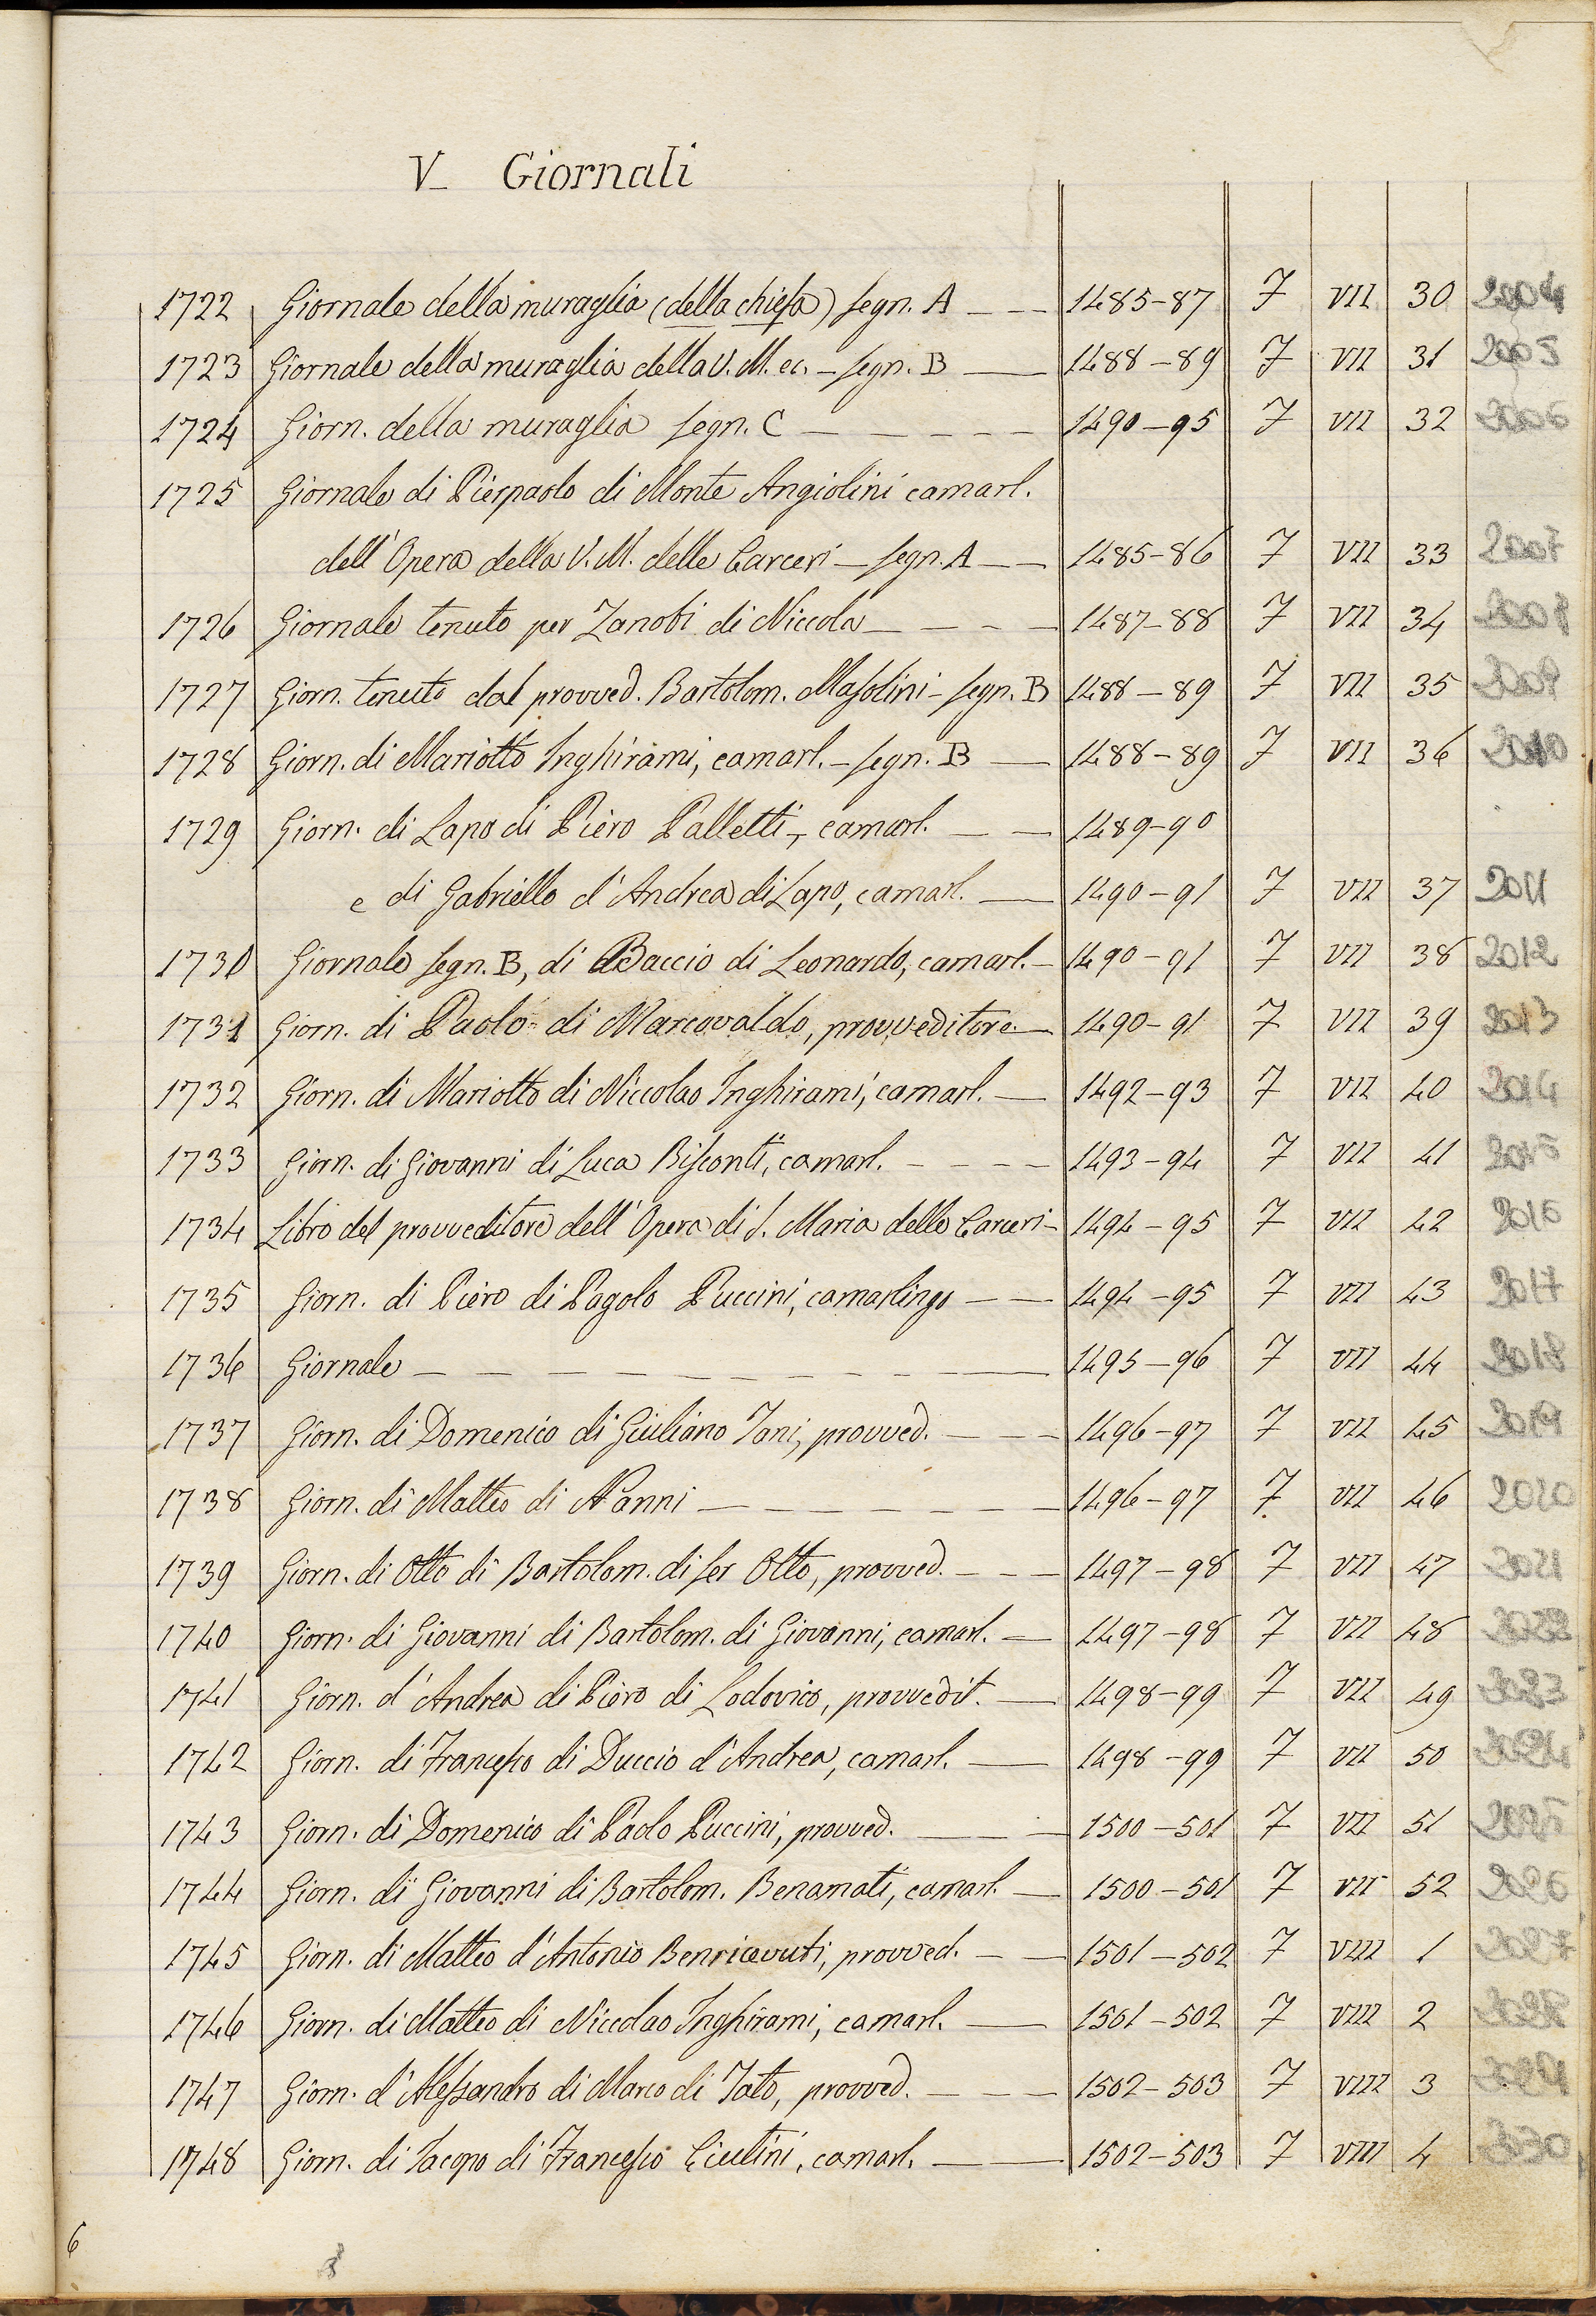 V_ Giornali
1722 Giornale della muraglia (della chiesa) segn. A _ _ 1485-87 7 VII 30 2004
1723 Giornale della muraglia della V. M. ec. - segn. B — 1488-89 7 VII 31 2005
1724 Giorn. della muraglia segn. C _ _ _ _ _ 1490-95 7 VII 32 2006
1725 Giornale di Pierpaolo di Monte Angiolini camarl.
dell'Opera della V. M. delle Carceri - segn. A _ _ 1485-86 7 VII 33 2007
1726 Giornale tenuto per Zanobi di Niccola _ _ _ _ 1487-88 7 VII 34 2008
1727 Giorn. tenuto dal provved. Bartolom. Masolini - segn. B 1488-89 7 VII 35 2009
1728 Giorn. di Mariotto Inghirami, camarl. - segn. B — 1488-89 7 VII 36 2010
1729 Giorn. di Lapo di Piero Palletti, camarl. _ _ 1489-90
e di Gabriello d'Andrea di Lapo, camarl. — 1490-91 7 VII 37 2011
1730 Giornale segn. B, di Baccio di Leonardo, camarl. - 1490-91 7 VII 38 2012
1731 Giorn. di Paolo di Marcovaldo, provveditore — 1490-91 7 VII 39 2013
1732 Giorn. di Mariotto di Niccolao Inghirami, camarl. — 1492-93 7 VII 40 2014
1733 Giorn. di Giovanni di Luca Bisconti, camarl. _ _ _ _ 1493-94 7 VII 41 2015
1734 Libro del provveditore dell'Opera di S. Maria delle Carceri - 1494-95 7 VII 42 2016
1735 Giorn. di Piero di Pagolo Puccini, camarlingo _ _ 1494-95 7 VII 43 2017
1736 Giornale _ _ _ _ _ _ _ _ _ 1495-96 7 VII 44 2018
1737 Giorn. di Domenico di Giuliano Tani, provved. _ _ _ 1496-97 7 VII 45 2019
1738 Giorn. di Matteo di Nanni _ _ _ _ _ _ 1496-97 7 VII 46 2020
1739 Giorn. di Otto di Bartolom. di ser Otto, provved. _ _ _ 1497-98 7 VII 47 2021
1740 Giorn. di Giovanni di Bartolom. di Giovanni, camarl. — 1497-98 7 VII 48 2022
1741 Giorn. d'Andrea di Piero di Lodovico, provvedit. — 1498-99 7 VII 49 2023
1742 Giorn. di Francesco di Duccio d'Andrea, camarl. — 1498-99 7 VII 50 2024
1743 Giorn. di Domenico di Paolo Puccini, provved. _ _ _ 1500-501 7 VII 51 2025
1744 Giorn. di Giovanni di Bartolom. Benamati, camarl. — 1500-501 7 VII 52 2026
1745 Giorn. di Matteo d'Antonio Benricevuti, provved. _ _ 1501-502 7 VIII 1 2027
1746 Giorn. di Matteo di Niccolao Inghirami, camarl. — 1501-502 7 VIII 2 2028
1747 Giorn. d'Alessandro di Marco di Tato, provved. _ _ _ 1502-503 7 VIII 3 2029
1748 Giorn. di Iacopo di Francesco Ciutini, camarl. — 1502-503 7 VIII 4 2030
6